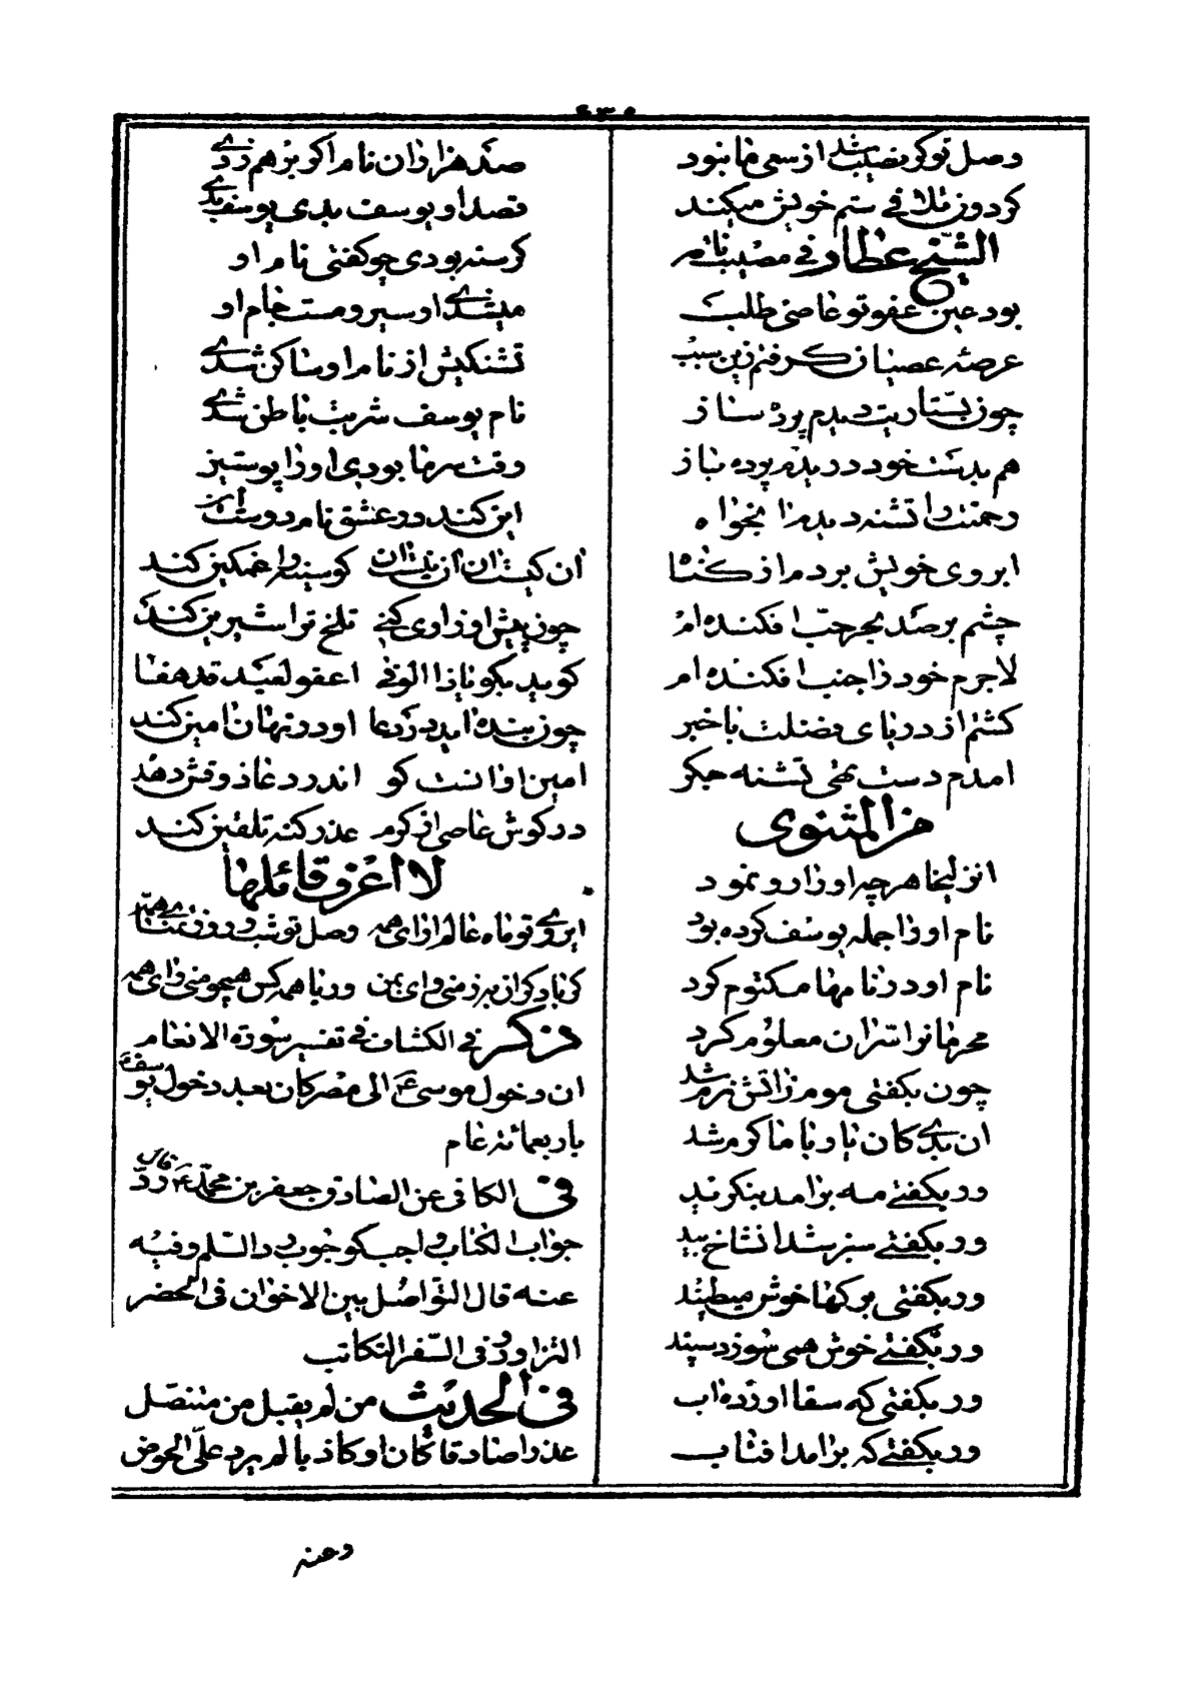 ٤٣٥
وصل تو گر نصیب شد از سعی ما نبود
گردون تلافی ستم خویش میکند
الشیخ عطار فی مصیبت نامه
بود عین عفو تو عاصی طلب
عرصه عصیان گرفتم زین سبب
چون بستاریت دیدم پرده ساز
هم بدست خود دریدم پرده باز
رحمتت را تشنه دیدم را بخواه
ابروی خویش بردم از گناه
چشم بر صد بحر حب افکنده ام
لاجرم خود را جنب افکنده ام
گشتم از دریای فضلت با خبر
امدم دست تهی تشنه جگر
من المثنوی
ان زلیخا هر چه او را رو نمود
نام او را جمله یوسف کرده بود
نام او در نامها مکتوم کرد
محرمانرا سر ان معلوم کرد
چون بگفتی موم ز اتش نرم شد
ان بدی کان یار با ما گرم شد
ور بگفتی مه برامد بنگرید
ور بگفتی سبز شد ان شاخ بید
ور بگفتی برگها خوش میطپند
ور بگفتی خوش همی سوزد سپند
ور بگفتی که سقا اورده اب
ور بگفتی که برامد افتاب
صد هزاران نام را گر بر هم زدی
قصد او یوسف بدی یوسف بدی
گرسنه بودی چو گفتی نام او
میشدی او سیر و مست جام او
تشنگیش از نام او ساکن شدی
نام یوسف شربت باطن شدی
وقت سرما بودی او را پوستین
این کند در عشق نام دوست این
ان کیست ان ان کیست ان کو سینه را غمگین کند
چون پیش او زاری کنی تلخ ترا شیرین کند
گوید بگو یا ذا الوفی اعفو لعبد قد هفا
چون بنده اید در دعا او در نهان امین کند
امین او انست کو اندر دعا ذوقش دهد
در گوش عاصی از کرم عذر گنه تلقین کند
لا اعرف قائلها
ای روی تو ماه عالم ارای همه وصل تو شب و روز تمنای همه
گر با دگران به ز منی وای بمن ور با همه کس همچو منی وای همه
ذکر فی الکشاف فی تفسیر سورة الانعام
ان دخول موسی ع الی مصر کان بعد دخول یوسف ع
باربعمائه عام
فی الکافی عن الصادق جعفر بن محمد ع قال رد
جواب الکتاب واجب کوجوب رد السلم وفیه
عنه قال التواصل بین الاخوان فی الحضر
التزاور وفی السفر التکاتب
فی الحدیث من لم یقبل من متنصل
عذرا صادقا کان او کاذبا لم یرد علی الحوض
وعنه